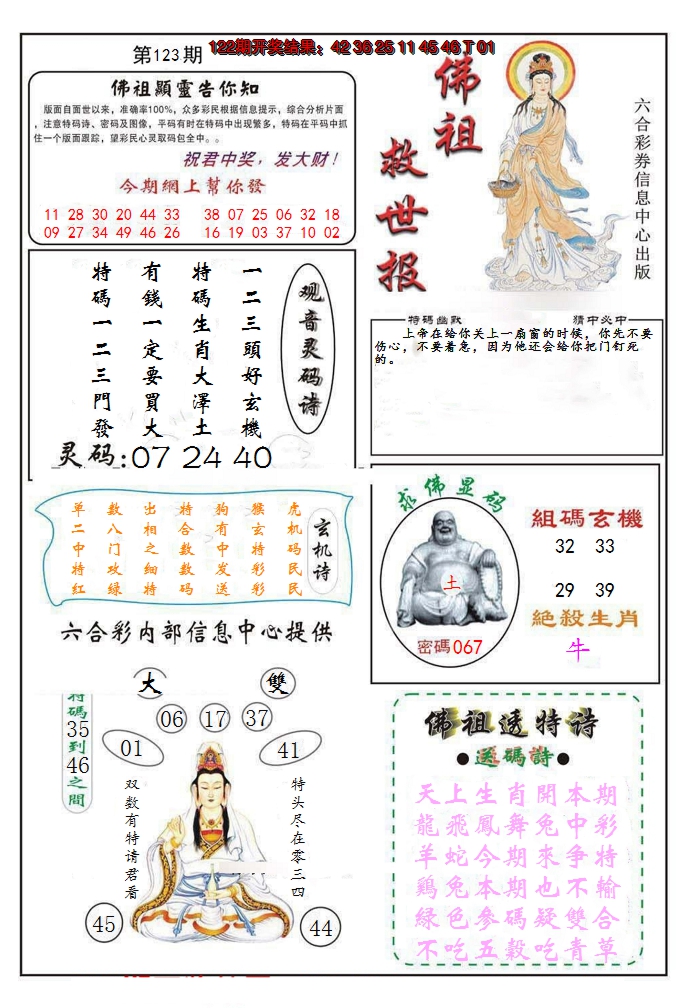 第123期
122期开奖结果：42 36 25 11 45 46 T 01
佛祖顯靈告你知
版面自面世以来，准确率100%，众多彩民根据信息提示，综合分析片面
，注意特码诗、密码及图像，平码有时在特码中出现繁多，特码在平码中抓
住一个版面跟踪，望彩民心灵取码包全中。。
祝君中奖，发大财！
今期網上幫你發
11 28 30 20 44 33 38 07 25 06 32 18
09 27 34 49 46 26 16 19 03 37 10 02
佛祖
救世报
六合彩券信息中心出版
观音灵码诗
一二三頭好玄機
特碼生肖大澤土
有錢一定要買大
特碼一二三門發
灵码:07 24 40
特碼幽默 猜中必中
上帝在给你关上一扇窗的时候，你先不要
伤心，不要着急，因为他还会给你把门钉死
的。
玄机诗
虎机码民民
猴玄特彩彩
狗有中发送
特合数数码
出相之细特
数八门攻绿
单二中特红
六合彩内部信息中心提供
求佛显码
土
密碼067
組碼玄機
32 33
29 39
絕殺生肖
牛
大 雙
特碼35到46之間
06 17 37
01 41
双数有特请君看
特头尽在零三四
45 44
佛祖透特诗
●送碼詩●
天上生肖開本期
龍飛鳳舞兔中彩
羊蛇今期來争特
鷄兔本期也不輸
綠色參碼疑雙合
不吃五穀吃青草